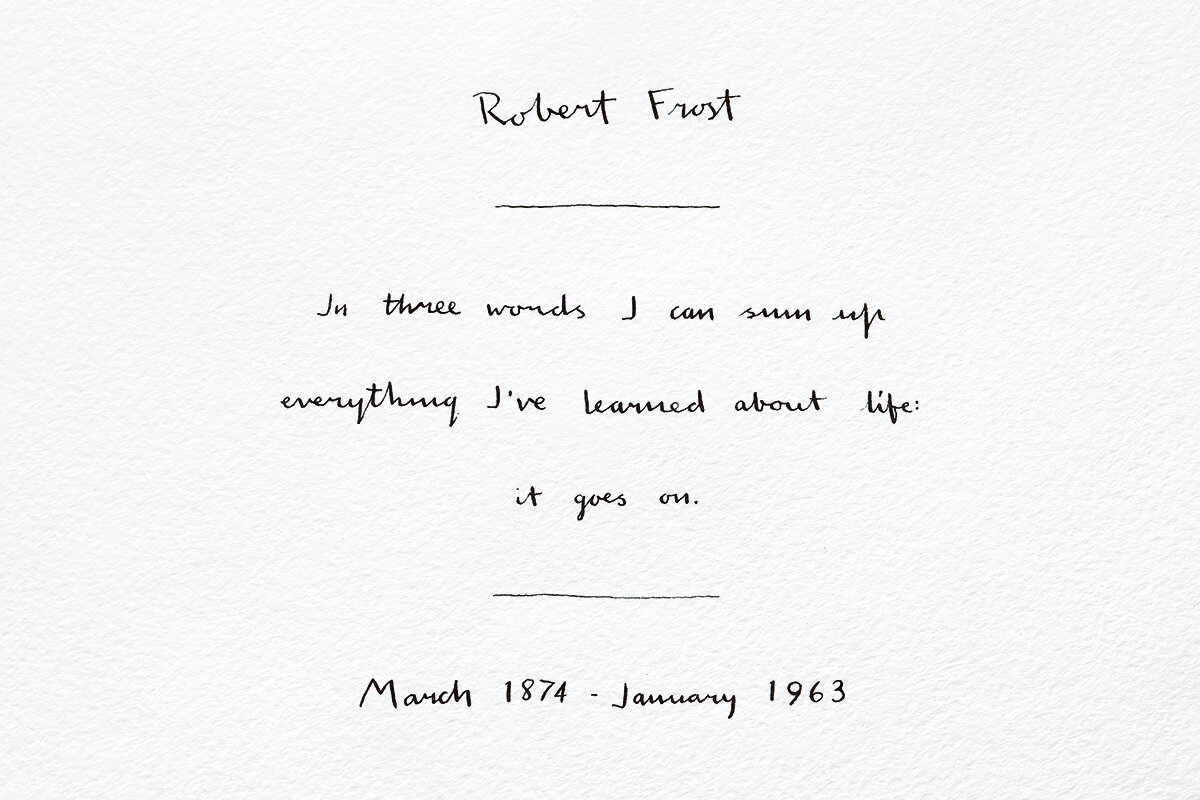 Robert Frost
In three words I can sum up
everything I've learned about life:
it goes on.
March 1874 - January 1963